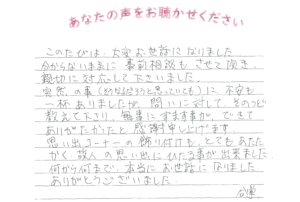 あなたの声をお聴かせください
このたびは、大変お世話になりました
分からないままに事前相談もさせて頂き、
親切に対応して下さいました。
突然の事(どうなるだろうと思っていても)に不安も
一杯ありましたが、問いに対して、そのつど
教えて下さり、無事にすますことが、できて
ありがたかったと感謝申し上げます。
思い出コーナーの飾り付けも、とてもあたた
かく、故人の思い出にひたる事が出来ました。
何から何まで、本当にお世話になりました
ありがとうございました。